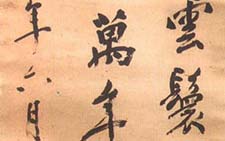 雲鬟
萬年
年六月